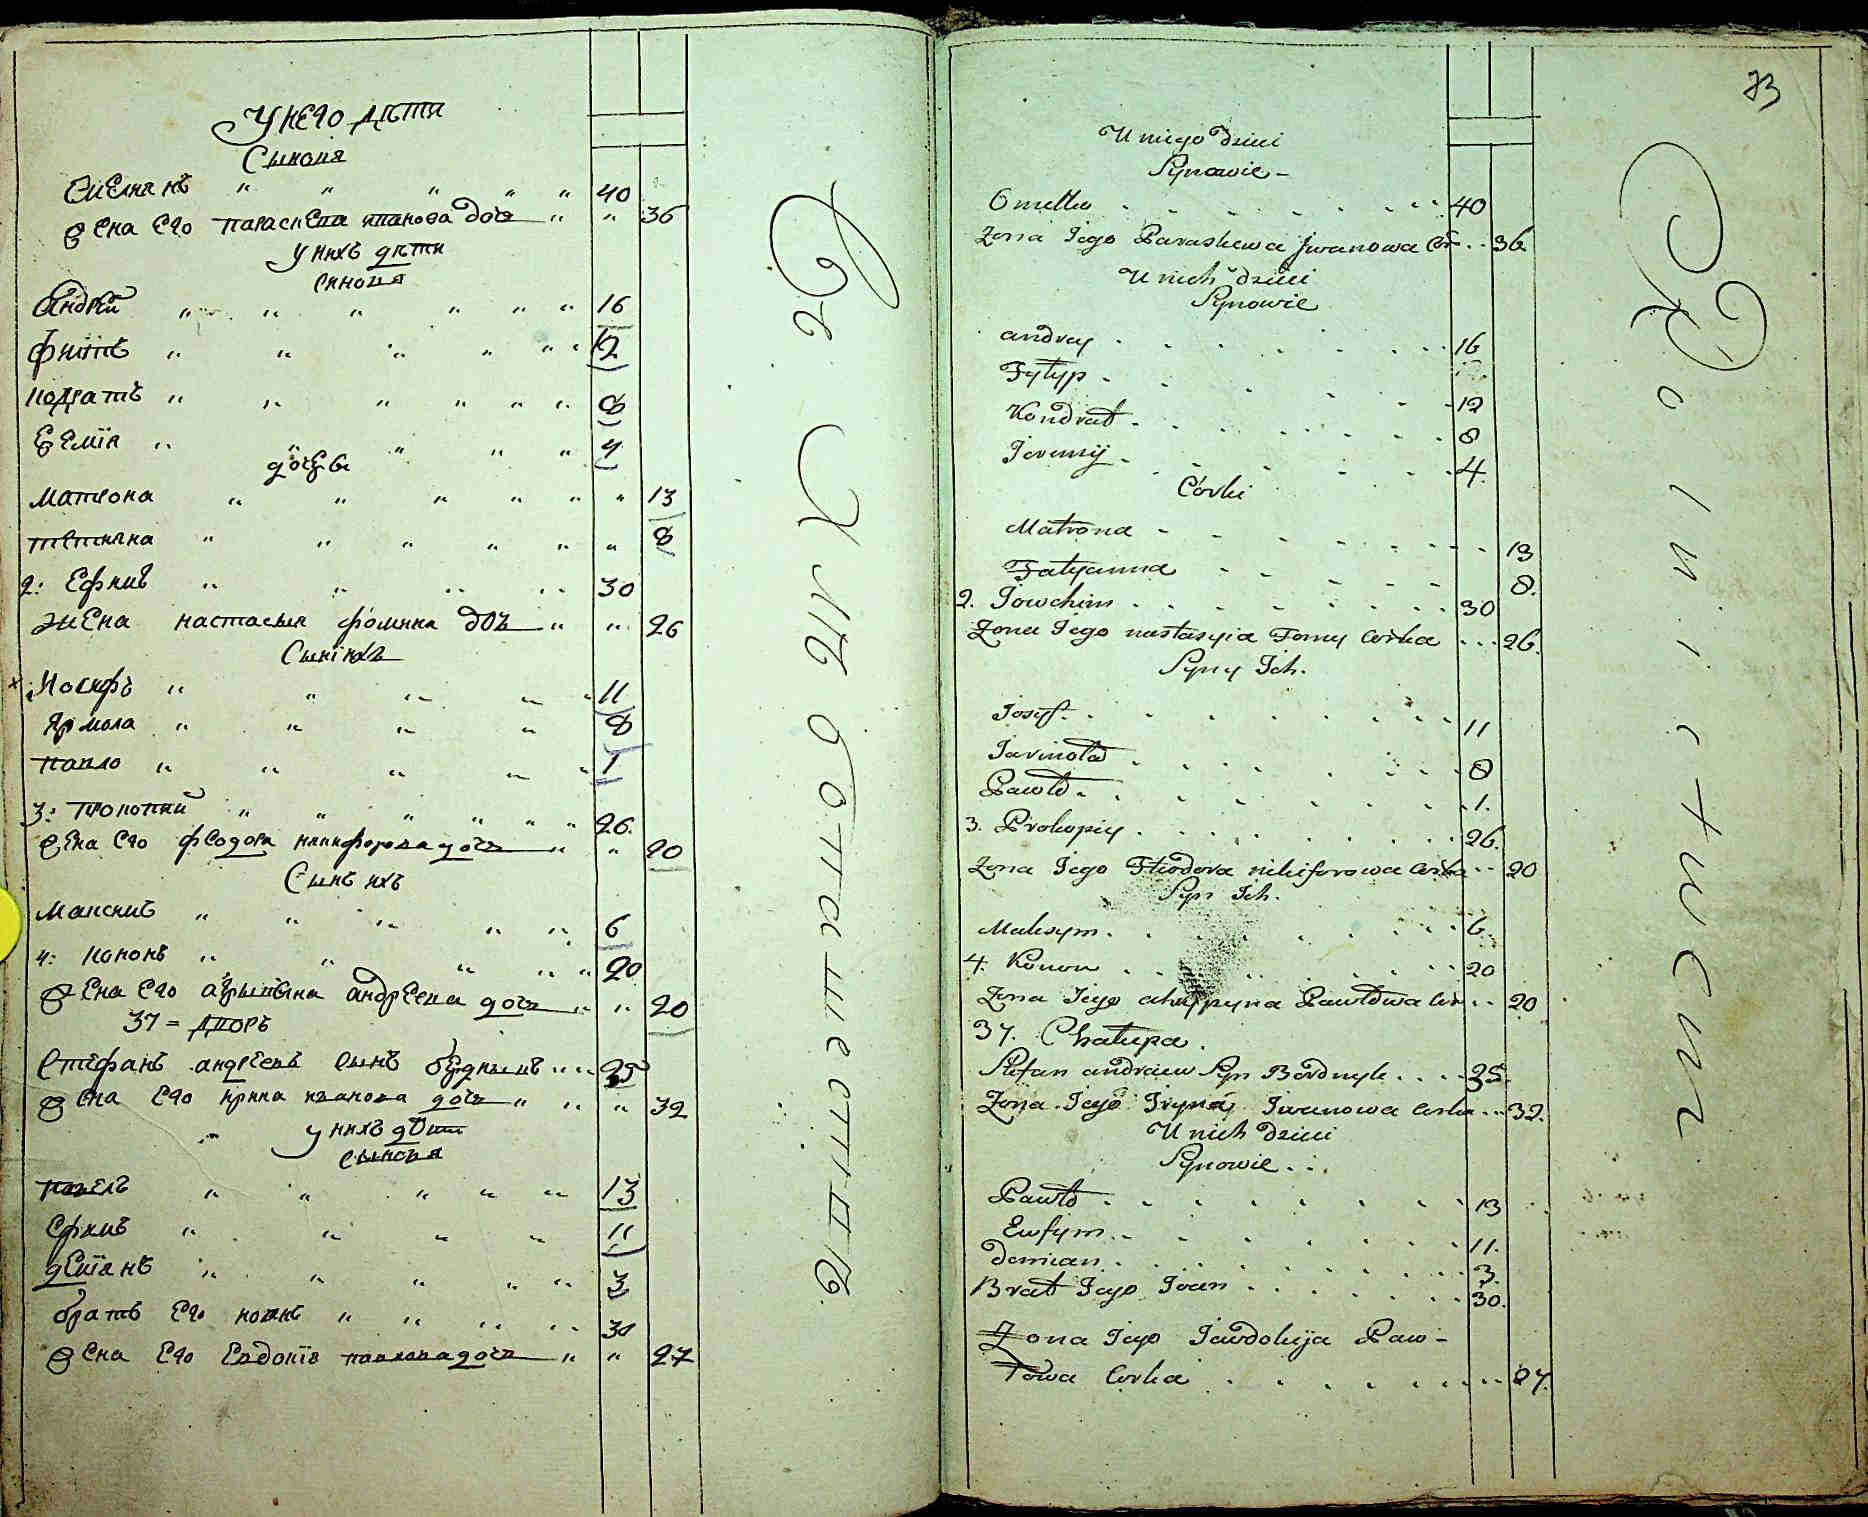 У него дѣти
Сыновя
Омелянъ " " " " " 40
жена его параскева иванова доч " " 36
у нихъ дѣти
синовя
Андрей " " " " " " 16
Филипъ " " " " " " 12
кодратъ " " " " " " 8
Еремiя " " " " " 4
дочери
матрона " " " " " " 13
тетияна " " " " " " 8
2: Ефимъ " " " " 30
жена настасыя фомина доч " " 26
Сыни ихъ
Иосифъ " " " " " 11
Ярмола " " " " 8
павло " " " " " 1
3: прокопий " " " " " " 26.
жена его феодора никифорова доч " " 20
Сынъ ихъ
Максимъ " " " " " 6
4: кононъ " " " " " 20
жена его андреева доч " " 20
37 = дворъ
Стефанъ андреевъ сынъ " " 25
жена его ирина иванова доч " " " 32
у нихъ дѣти
сыновя
павелъ " " " " " 13
ефимъ " " " " 11
демiанъ " " " " " 3
братъ его иоанъ " " " " 30
жена его евдокiя павлова доч " " 27
73
U niego dzieci
Synowie -
Omelko . . . . . . . . 40
Zona Iego Paraskewa Jwanowa Cor . . 36
U nich dzieci
Synowie
andrey . . . . . . . . 16
Fylyp . . . . . . 12
Kondrat . . . . . . . . 8
Jeremij . . . . . . . 4.
Córki
Matrona - . . . . . . . 13
Tatyanna - . . . . . 8.
2. Jowchim . . . . . . . . 30
Zona Iego nastasyia Fomy corka . . . 26.
Syny Ich.
Iosyf . . . . . . . . . 11
Jarmoła . . . . . . . . 8
Pawło . . . . . . . . 1.
3. Prokopiy . . . . . . . . . 26.
Zona Iego Fteodora nikiforowa corka . . 20
Syn Ich.
Maksym . . . . . . . . . 6.
4. Konon . . . . . . . . . 20
Zona Iego ahrypyna Pawłowa cor . . 20
37. Chałupa.
Stefan andraiew Syn Bordnyk . . . . 25.
Zona Iego Iryna Iwanowa corka . . . 32.
U nich dzieci
Synowie . . .
Pawło . . . . . . . . 13
Ewfym . . . . . . . . . 11.
demian . . . . . . . . . 3.
Brat Iego Iwan . . . . . . . 30.
Zona Iego Jewdokija Paw-
łowa Corka . . . . . . . . . 27.